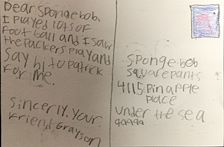 Dear Spongebob,
I played lots of
Foot ball and I saw
the Packers play and
Say hi to Patrick
For me.
Sincerly, your
Friend Grayson
Spongebob
Squarepants
4115 Pinapple
place
under the sea